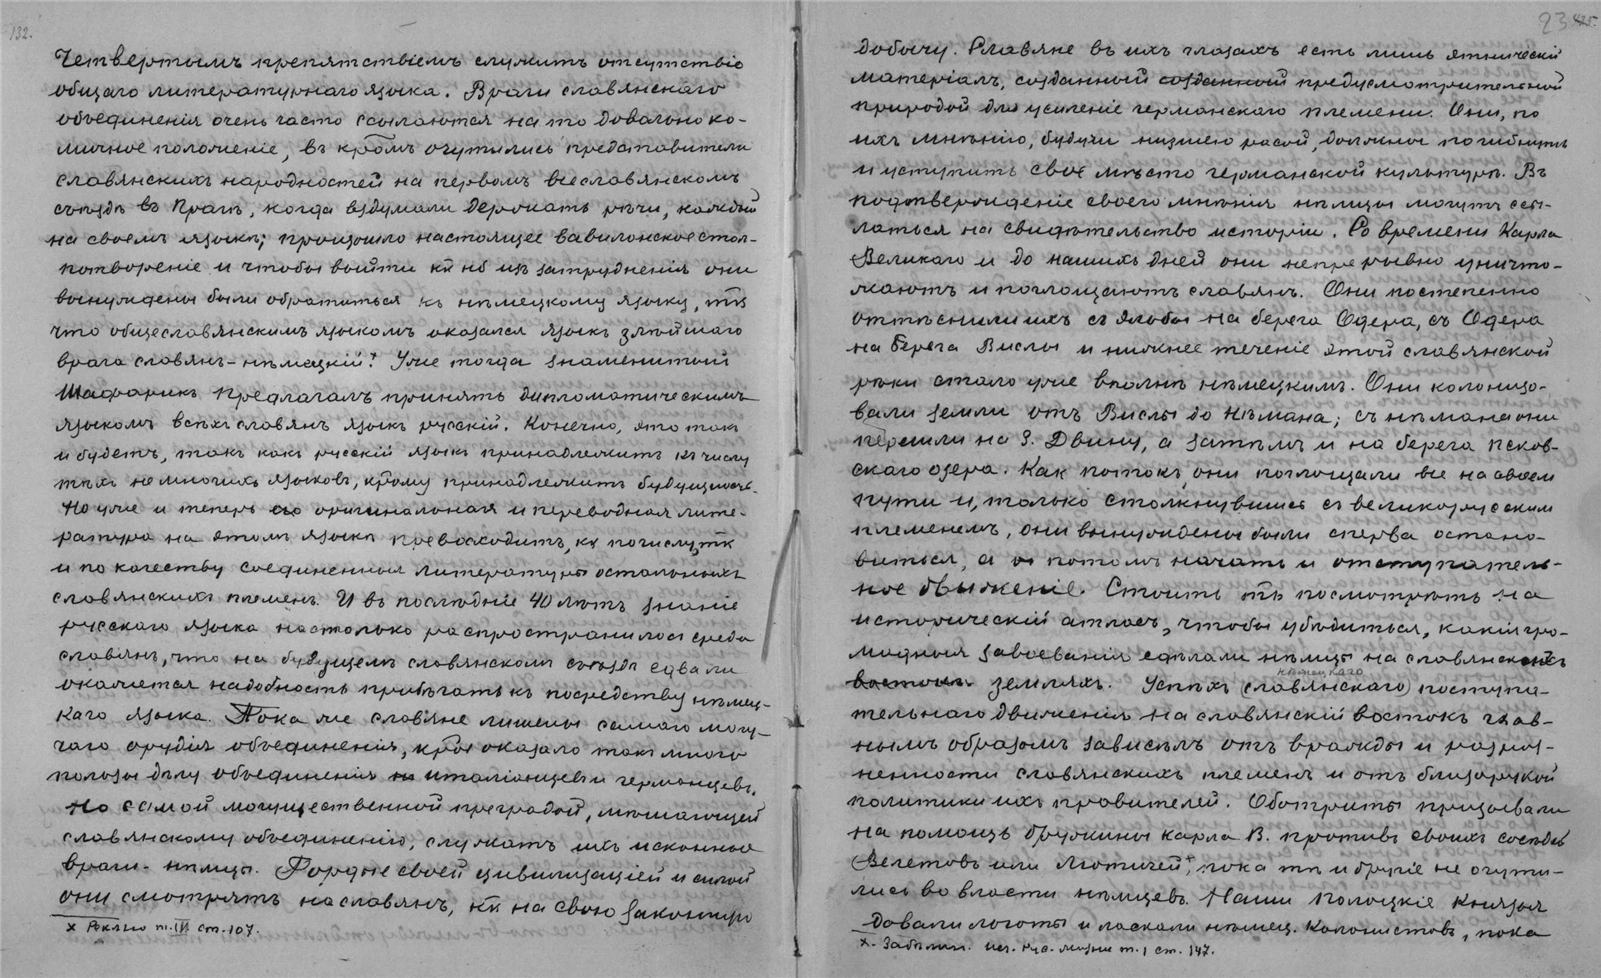 132.
Четвертымъ препятствіемъ служитъ отсутствіе
общаго литературнаго языка. Враги славянскаго
объединенія очень часто ссылаются на то довольно ко-
мичное положеніе, въ кромъ очутились представители
славянскихъ народностей на первомъ всеславянскомъ
съѣздѣ въ Прагѣ, когда вздумали держать рѣчи, каждый
на своемъ языкѣ; произошло настоящее вавилонское стол-
потвореніе и чтобы выйти изъ затрудненія они
вынуждены были обратиться къ нѣмецкому языку, тк
что общеславянскимъ языкомъ оказался языкъ злѣйшаго
врага славянъ - нѣмецкій! Уже тогда знаменитый
Шафарикъ предлагалъ принять дипломатическимъ
языкомъ всѣхъ славянъ языкъ русскій. Конечно, это такъ
и будетъ, такъ какъ русскій языкъ принадлежитъ къ числу
тѣхъ немногихъ языковъ, крому принадлежитъ будущность.
Но уже и теперь оригинальная и переводная лите-
ратура на этомъ языкѣ превосходитъ, кк по числу, тк
и по качеству соединенныя литературы остальныхъ
славянскихъ племенъ. И въ послѣдніе 40 лѣтъ знаніе
русскаго языка настолько распространилось среди
славянъ, что на будущемъ славянскомъ съѣздѣ едва ли
окажется надобность прибѣгать къ посредству нѣмец-
каго языка. Пока же славяне лишены самаго могу-
чаго орудія объединенія, крое оказало такъ много
пользы дѣлу объединенія итальянцевъ и германцевъ.
Но самой могущественной преградой, мѣшающей
славянскому объединенію, служатъ ихъ исконные
враги - нѣмцы. Гордые своей цивилизаціей и силой
они смотрятъ на славянъ, кк на свою законную
х т. III ст. 107.
23
добычу. Славяне въ ихъ глазахъ есть лишь этническій
матеріалъ, созданный созданной предусмотрительной
природой для усиленіе германскаго племени. Они, по
ихъ мнѣнію, будучи низшею расой, должны погибнуть
и уступить свое мѣсто германской культурѣ. Въ
подтвержденіе своего мнѣнія нѣмцы могутъ ссы-
латься на свидѣтельство исторіи. Со времени Карла
Великаго и до нашихъ дней они непрерывно уничто-
жаютъ и поглощаютъ славянъ. Они постепенно
оттѣснили ихъ съ Эльбы на берега Одера, съ Одера
на берега Вислы и нижнее теченіе этой славянской
рѣки стало уже вполнѣ нѣмецкимъ. Они колонизо-
вали земли отъ Вислы до Нѣмана; съ Нѣмана они
перешли на З. Двину, а затѣмъ и на берега Псков-
скаго озера. Какъ потокъ, они поглощали все на своем
пути и, только столкнувшись съ великорусским
племенемъ, они вынуждены были сперва остано-
виться, а потомъ начать и отступатель-
ное движеніе. Стоитъ посмотрѣть на
историческій атласъ, чтобы убѣдиться, какія гро-
мадныя завоеванія сдѣлали нѣмцы на славянскихъ
востокѣ земляхъ. Успѣхъ (славянскаго) нѣмецкаго поступа-
тельнаго движенія на славянскій востокъ глав-
нымъ образомъ зависѣлъ отъ вражды и разроз-
ненности славянскихъ племенъ и отъ близорукой
политики ихъ правителей. Оботриты призывали
на помощь дружины Карла В. противъ своихъ сосѣдей
Велетовъ или Лютичей х, пока тѣ и другіе не очути-
лись во власти нѣмцевъ. Наши Полоцкіе Князья
давали льготы и ласкали нѣмец. колонистовъ, пока
х. Забѣлин. ист. рус. жизни т. 1 ст. 147.